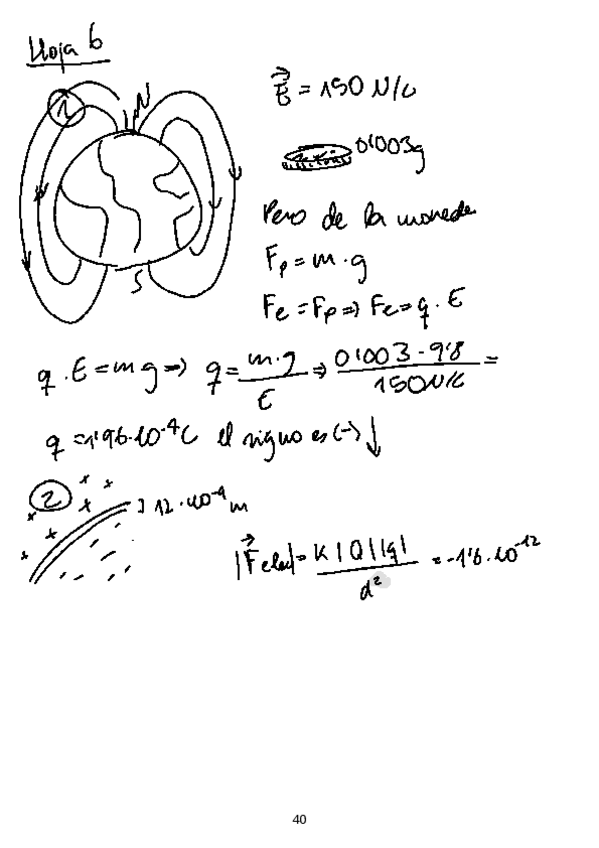 Hoja 6
1
N
S
E = 150 N/C
0'003g
Peso de la moneda
Fp = m · g
Fe = Fp => Fe = q · E
q · E = m g => q = m · g / E => 0'003 · 9'8 / 150 N/C =
q = 1'96 · 10^-4 C el signo es (-) ↓
2
] 12 · 10^-9 m
|Felec| = K |Q| |q| / d² = -1'6 · 10^-12
40